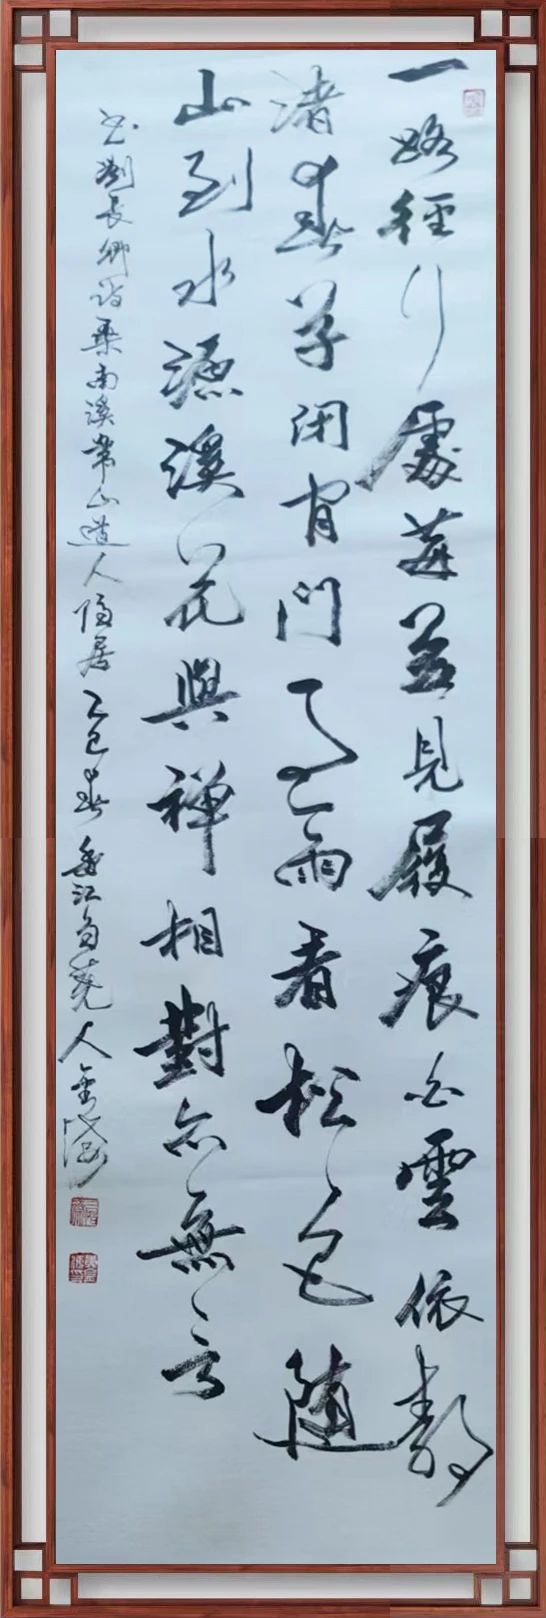 一路徑行處莓苔見履痕白雲依靜
渚春草閉閒門過雨看松色隨
山到水源溪花與禪相對亦無言
書劉長卿詩尋南溪常山道人隱居 乙巳春 香江 人